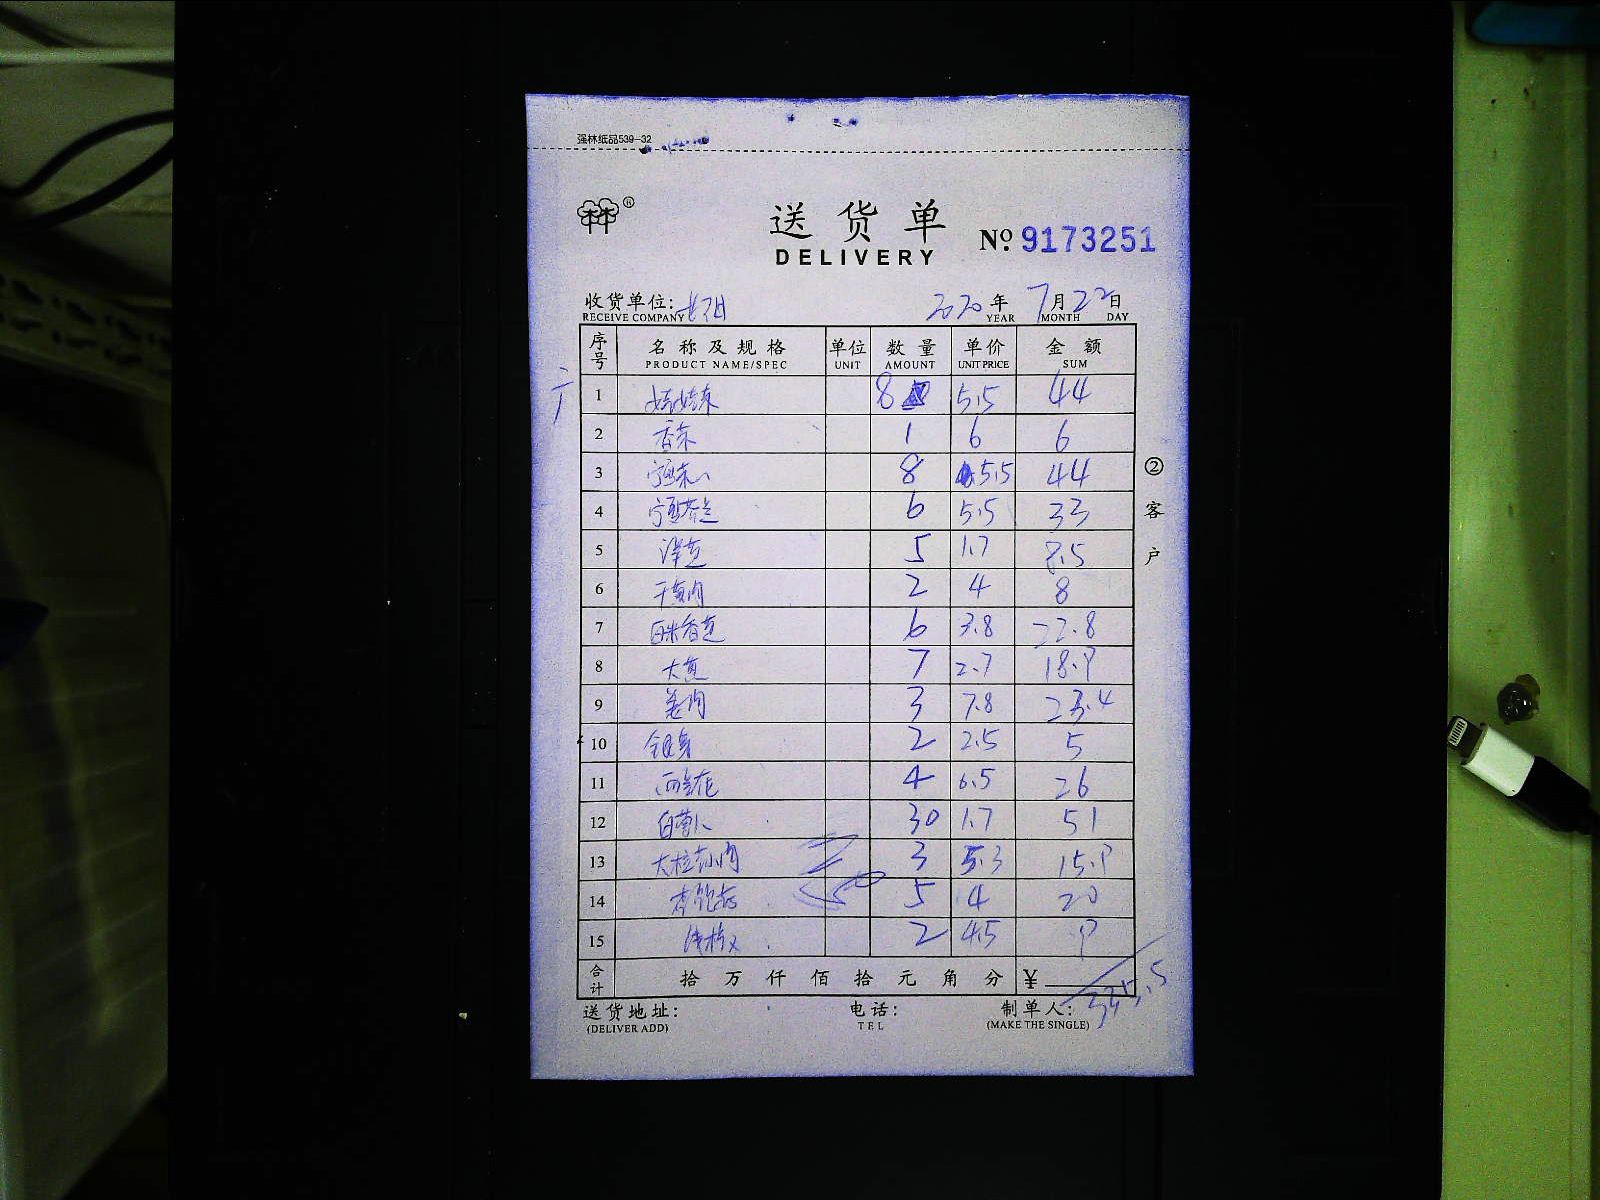 强林纸品539-32
林®
送货单
DELIVERY
No. 9173251
收货单位: 2020年7月22日
RECEIVE COMPANY YEAR MONTH DAY
序号 名称及规格 单位 数量 单价 金额
PRODUCT NAME/SPEC UNIT AMOUNT UNIT PRICE SUM
1 娃娃菜 8 5.5 44
2 香菜 1 6 6
3 8 5.5 44
4 6 5.5 33
5 洋芋 5 1.7 8.5
6 2 4 8
7 6 3.8 22.8
8 大葱 7 2.7 18.9
9 姜肉 3 7.8 23.4
10 2 2.5 5
11 西兰花 4 6.5 26
12 白萝卜 30 1.7 51
13 3 5.3 15.9
14 5 4 20
15 2 4.5 9
合计 拾万仟佰拾元角分 ¥ 335.5
送货地址: 电话: 制单人:
(DELIVER ADD) TEL (MAKE THE SINGLE)
②客户